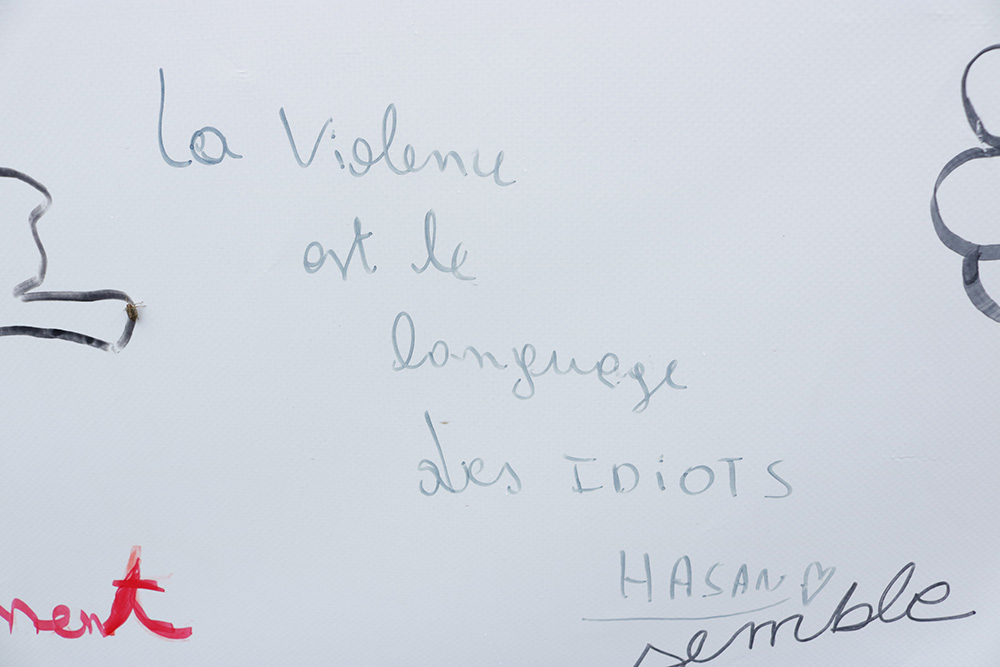 La Violence
est le
language
des IDiOTS
HASAN
ment
semble